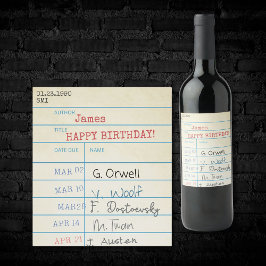 01.23.1990
SMI
AUTHOR
James
TITLE
HAPPY BIRTHDAY!
DATE DUE NAME
MAR 02 G. Orwell
MAR 10 V. Woolf
MAR 28 F. Dostoevsky
APR 14 M. Twain
APR 21 J. Austen
James
HAPPY BIRTHDAY!
G. Orwell
V. Woolf
F. Dostoevsky
M. Twain
J. Austen